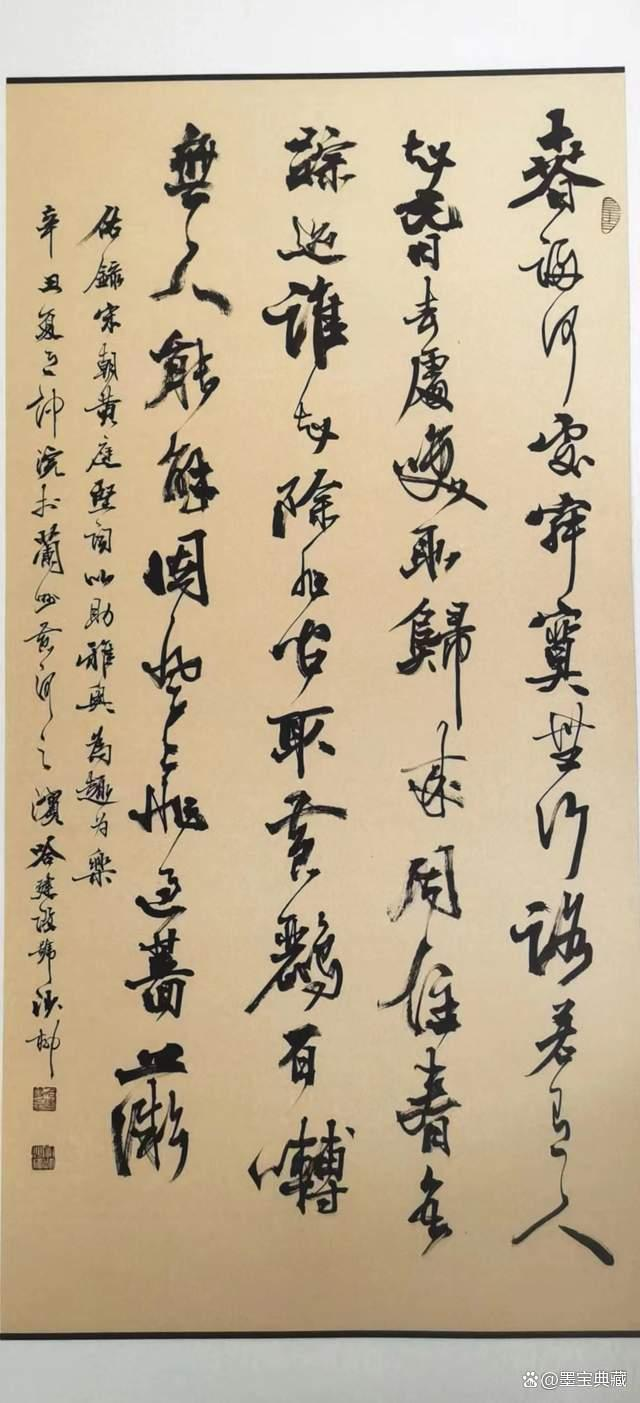 春歸何處寂寞無行路若有人
知春去處喚取歸來同住春無
踪迹誰知除非問取黄鸝百囀
無人能解因風飛過薔薇
錄宋朝黄庭堅詞以助雅興為趣为樂
辛丑夏之仲浣於蘭州黄河之濱哈建設號沙柳
@墨宝典藏